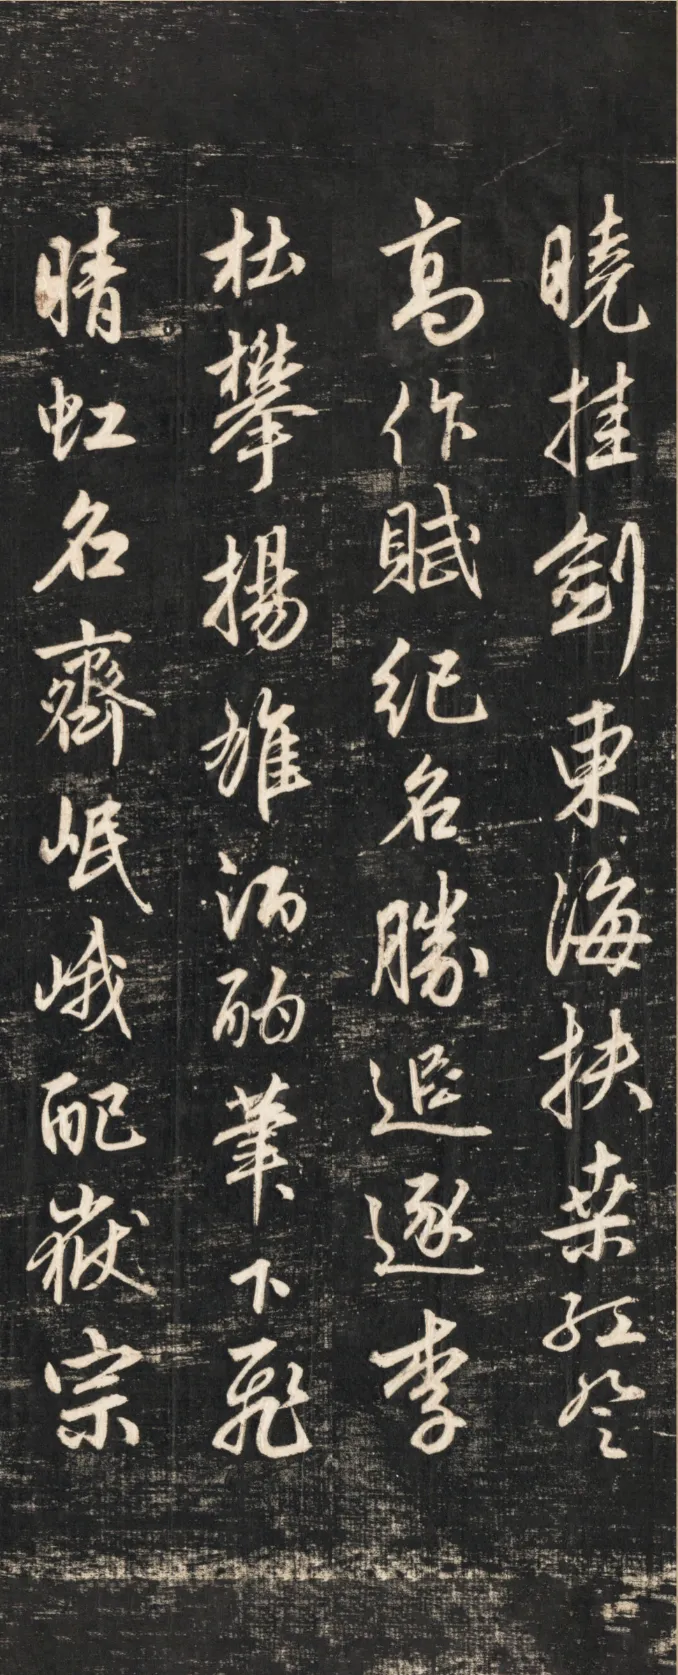 曉挂劍東海扶桒紅登
高作賦紀名勝追逐李
杜攀揚雄酒酣筆下飛
晴虹名齊岷峨配嶽宗